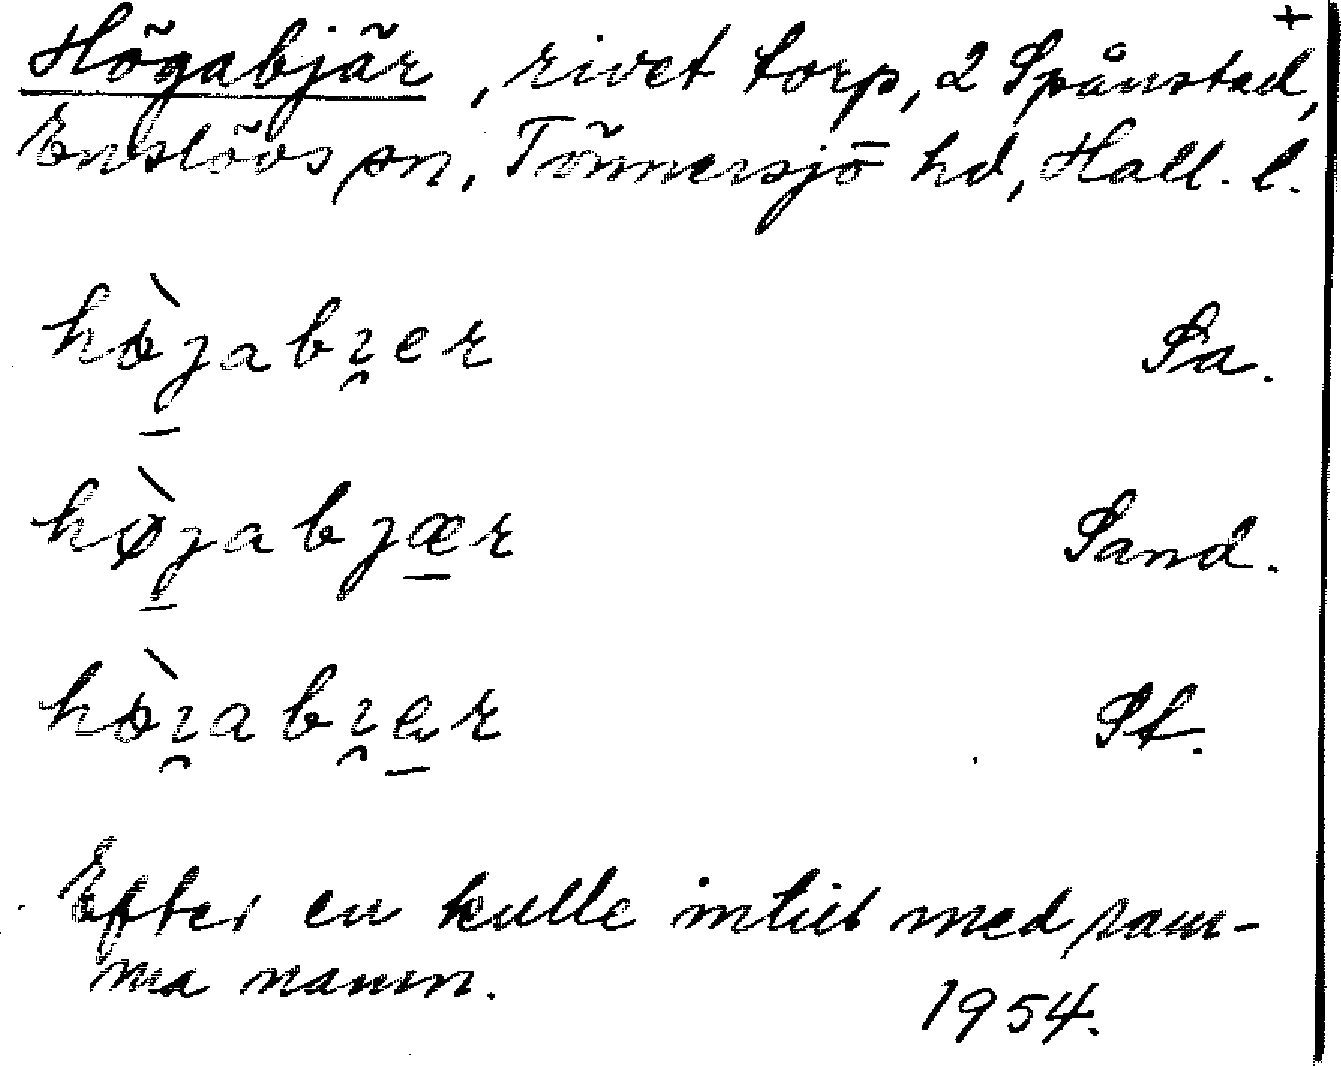 +
Högabjär, rivet torp, 2 Spånstad,
Enslövs sn, Tönnersjö hd, Hall. l.
hòjabɪ̯er Pa.
hø̀jabjær Sand.
hòɪ̯abɪ̯er Pf.
Efter en kulle intill med sam-
ma namn.
1954.